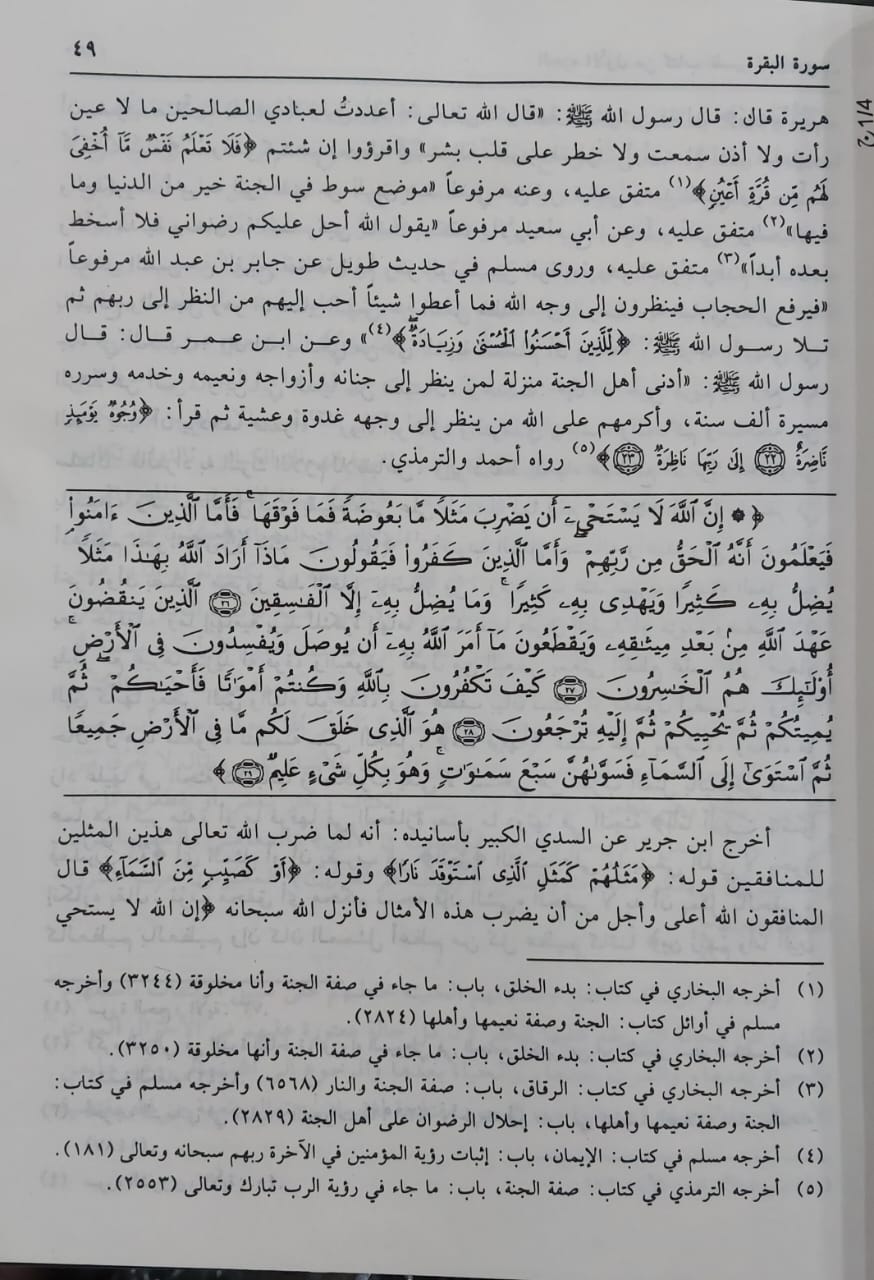 سورة البقرة ٤٩
ج1/4
هريرة قال: قال رسول الله ﷺ: «قال الله تعالى: أعددتُ لعبادي الصالحين ما لا عين
رأت ولا أذن سمعت ولا خطر على قلب بشر» واقرؤوا إن شئتم ﴿فَلَا تَعْلَمُ نَفْسٌ مَّآ أُخْفِىَ
لَهُم مِّن قُرَّةِ أَعْيُنٍ﴾(١) متفق عليه، وعنه مرفوعاً «موضع سوط في الجنة خير من الدنيا وما
فيها»(٢) متفق عليه، وعن أبي سعيد مرفوعاً «يقول الله أحل عليكم رضواني فلا أسخط
بعده أبداً»(٣) متفق عليه، وروى مسلم في حديث طويل عن جابر بن عبد الله مرفوعاً
«فيرفع الحجاب فينظرون إلى وجه الله فما أعطوا شيئاً أحب إليهم من النظر إلى ربهم ثم
تلا رسول الله ﷺ: ﴿لِّلَّذِينَ أَحْسَنُوا۟ ٱلْحُسْنَىٰ وَزِيَادَةٌ ۖ﴾(٤)» وعن ابن عمر قال: قال
رسول الله ﷺ: «أدنى أهل الجنة منزلة لمن ينظر إلى جنانه وأزواجه ونعيمه وخدمه وسرره
مسيرة ألف سنة، وأكرمهم على الله من ينظر إلى وجهه غدوة وعشية ثم قرأ: ﴿وُجُوهٌ يَوْمَئِذٍ
نَّاضِرَةٌ ﴿٢٢﴾ إِلَىٰ رَبِّهَا نَاظِرَةٌ ﴿٢٣﴾﴾(٥) رواه أحمد والترمذي.
﴿۞ إِنَّ ٱللَّهَ لَا يَسْتَحْىِۦٓ أَن يَضْرِبَ مَثَلًا مَّا بَعُوضَةً فَمَا فَوْقَهَا ۚ فَأَمَّا ٱلَّذِينَ ءَامَنُوا۟
فَيَعْلَمُونَ أَنَّهُ ٱلْحَقُّ مِن رَّبِّهِمْ ۖ وَأَمَّا ٱلَّذِينَ كَفَرُوا۟ فَيَقُولُونَ مَاذَآ أَرَادَ ٱللَّهُ بِهَـٰذَا مَثَلًا ۘ
يُضِلُّ بِهِۦ كَثِيرًا وَيَهْدِى بِهِۦ كَثِيرًا ۚ وَمَا يُضِلُّ بِهِۦٓ إِلَّا ٱلْفَـٰسِقِينَ ﴿٢٦﴾ ٱلَّذِينَ يَنقُضُونَ
عَهْدَ ٱللَّهِ مِنۢ بَعْدِ مِيثَـٰقِهِۦ وَيَقْطَعُونَ مَآ أَمَرَ ٱللَّهُ بِهِۦٓ أَن يُوصَلَ وَيُفْسِدُونَ فِى ٱلْأَرْضِ ۚ
أُو۟لَـٰٓئِكَ هُمُ ٱلْخَـٰسِرُونَ ﴿٢٧﴾ كَيْفَ تَكْفُرُونَ بِٱللَّهِ وَكُنتُمْ أَمْوَٰتًا فَأَحْيَـٰكُمْ ۖ ثُمَّ
يُمِيتُكُمْ ثُمَّ يُحْيِيكُمْ ثُمَّ إِلَيْهِ تُرْجَعُونَ ﴿٢٨﴾ هُوَ ٱلَّذِى خَلَقَ لَكُم مَّا فِى ٱلْأَرْضِ جَمِيعًا
ثُمَّ ٱسْتَوَىٰٓ إِلَى ٱلسَّمَآءِ فَسَوَّىٰهُنَّ سَبْعَ سَمَـٰوَٰتٍ ۚ وَهُوَ بِكُلِّ شَىْءٍ عَلِيمٌ ﴿٢٩﴾﴾
أخرج ابن جرير عن السدي الكبير بأسانيده: أنه لما ضرب الله تعالى هذين المثلين
للمنافقين قوله: ﴿مَثَلُهُمْ كَمَثَلِ ٱلَّذِى ٱسْتَوْقَدَ نَارًا﴾ وقوله: ﴿أَوْ كَصَيِّبٍ مِّنَ ٱلسَّمَآءِ﴾ قال
المنافقون الله أعلى وأجل من أن يضرب هذه الأمثال فأنزل الله سبحانه ﴿إن الله لا يستحي
(١) أخرجه البخاري في كتاب: بدء الخلق، باب: ما جاء في صفة الجنة وأنا مخلوقة (٣٢٤٤) وأخرجه
مسلم في أوائل كتاب: الجنة وصفة نعيمها وأهلها (٢٨٢٤).
(٢) أخرجه البخاري في كتاب: بدء الخلق، باب: ما جاء في صفة الجنة وأنها مخلوقة (٣٢٥٠).
(٣) أخرجه البخاري في كتاب: الرقاق، باب: صفة الجنة والنار (٦٥٦٨) وأخرجه مسلم في كتاب:
الجنة وصفة نعيمها وأهلها، باب: إحلال الرضوان على أهل الجنة (٢٨٢٩).
(٤) أخرجه مسلم في كتاب: الإيمان، باب: إثبات رؤية المؤمنين في الآخرة ربهم سبحانه وتعالى (١٨١).
(٥) أخرجه الترمذي في كتاب: صفة الجنة، باب: ما جاء في رؤية الرب تبارك وتعالى (٢٥٥٣).